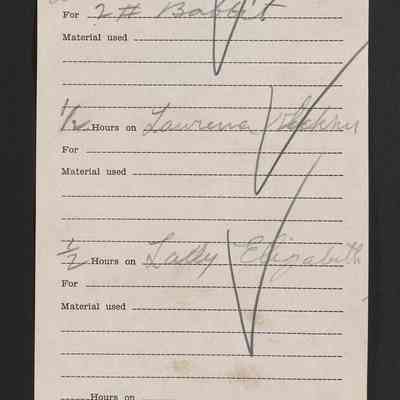 For 2 # Babbit
Material used
1/2 Hours on Laurena
For
Material used
1/2 Hours on Lady Elizabeth
For
Material used
Hours on